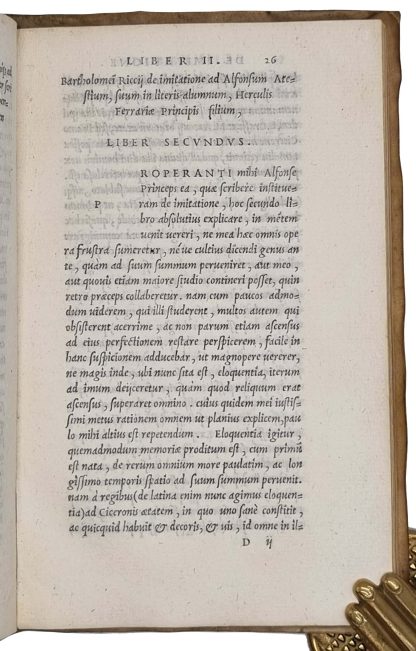 LIBER II. 26
Bartholomei Riccij de imitatione ad Alfonsum Ate-
stium, suum in literis alumnum, Herculis
Ferrariæ Principis filium,
LIBER SECVNDVS.
P ROPERANTI mihi Alfonse
Princeps ea, quæ scribere institue-
ram de imitatione, hoc secundo li-
bro absolutius explicare, in mētem
uenit uereri, ne mea hæc omnis ope
ra frustra sumeretur, néue cultius dicendi genus an
te, quàm ad suum summum perueniret, aut meo,
aut quouis etiam maiore studio contineri posset, quin
retro præceps collaberetur. nam cum paucos admo-
dum uiderem, qui illi studerent, multos autem qui
obsisterent acerrime, ac non parum etiam ascensus
ad eius perfectionem restare perspicerem, facile in
hanc suspicionem adducebar, ut magnopere uererer,
ne magis inde, ubi nunc sita est, eloquentia, iterum
ad imum deijceretur, quàm quod reliquum erat
ascensus, superaret omnino. cuius quidem mei iustis-
simi metus rationem omnem ut planius explicem, pau
lo mihi altius est repetendum. Eloquentia igitur,
quemadmodum memoriæ proditum est, cum primū
est nata, de rerum omnium more paulatim, ac lon
gissimo temporis spatio ad suum summum peruenit.
nam à regibus (de latina enim nunc agimus eloquen-
tia) ad Ciceronis ætatem, in quo uno sanè constitit,
ac quicquid habuit & decoris, & uis, id omne in il-
D ij